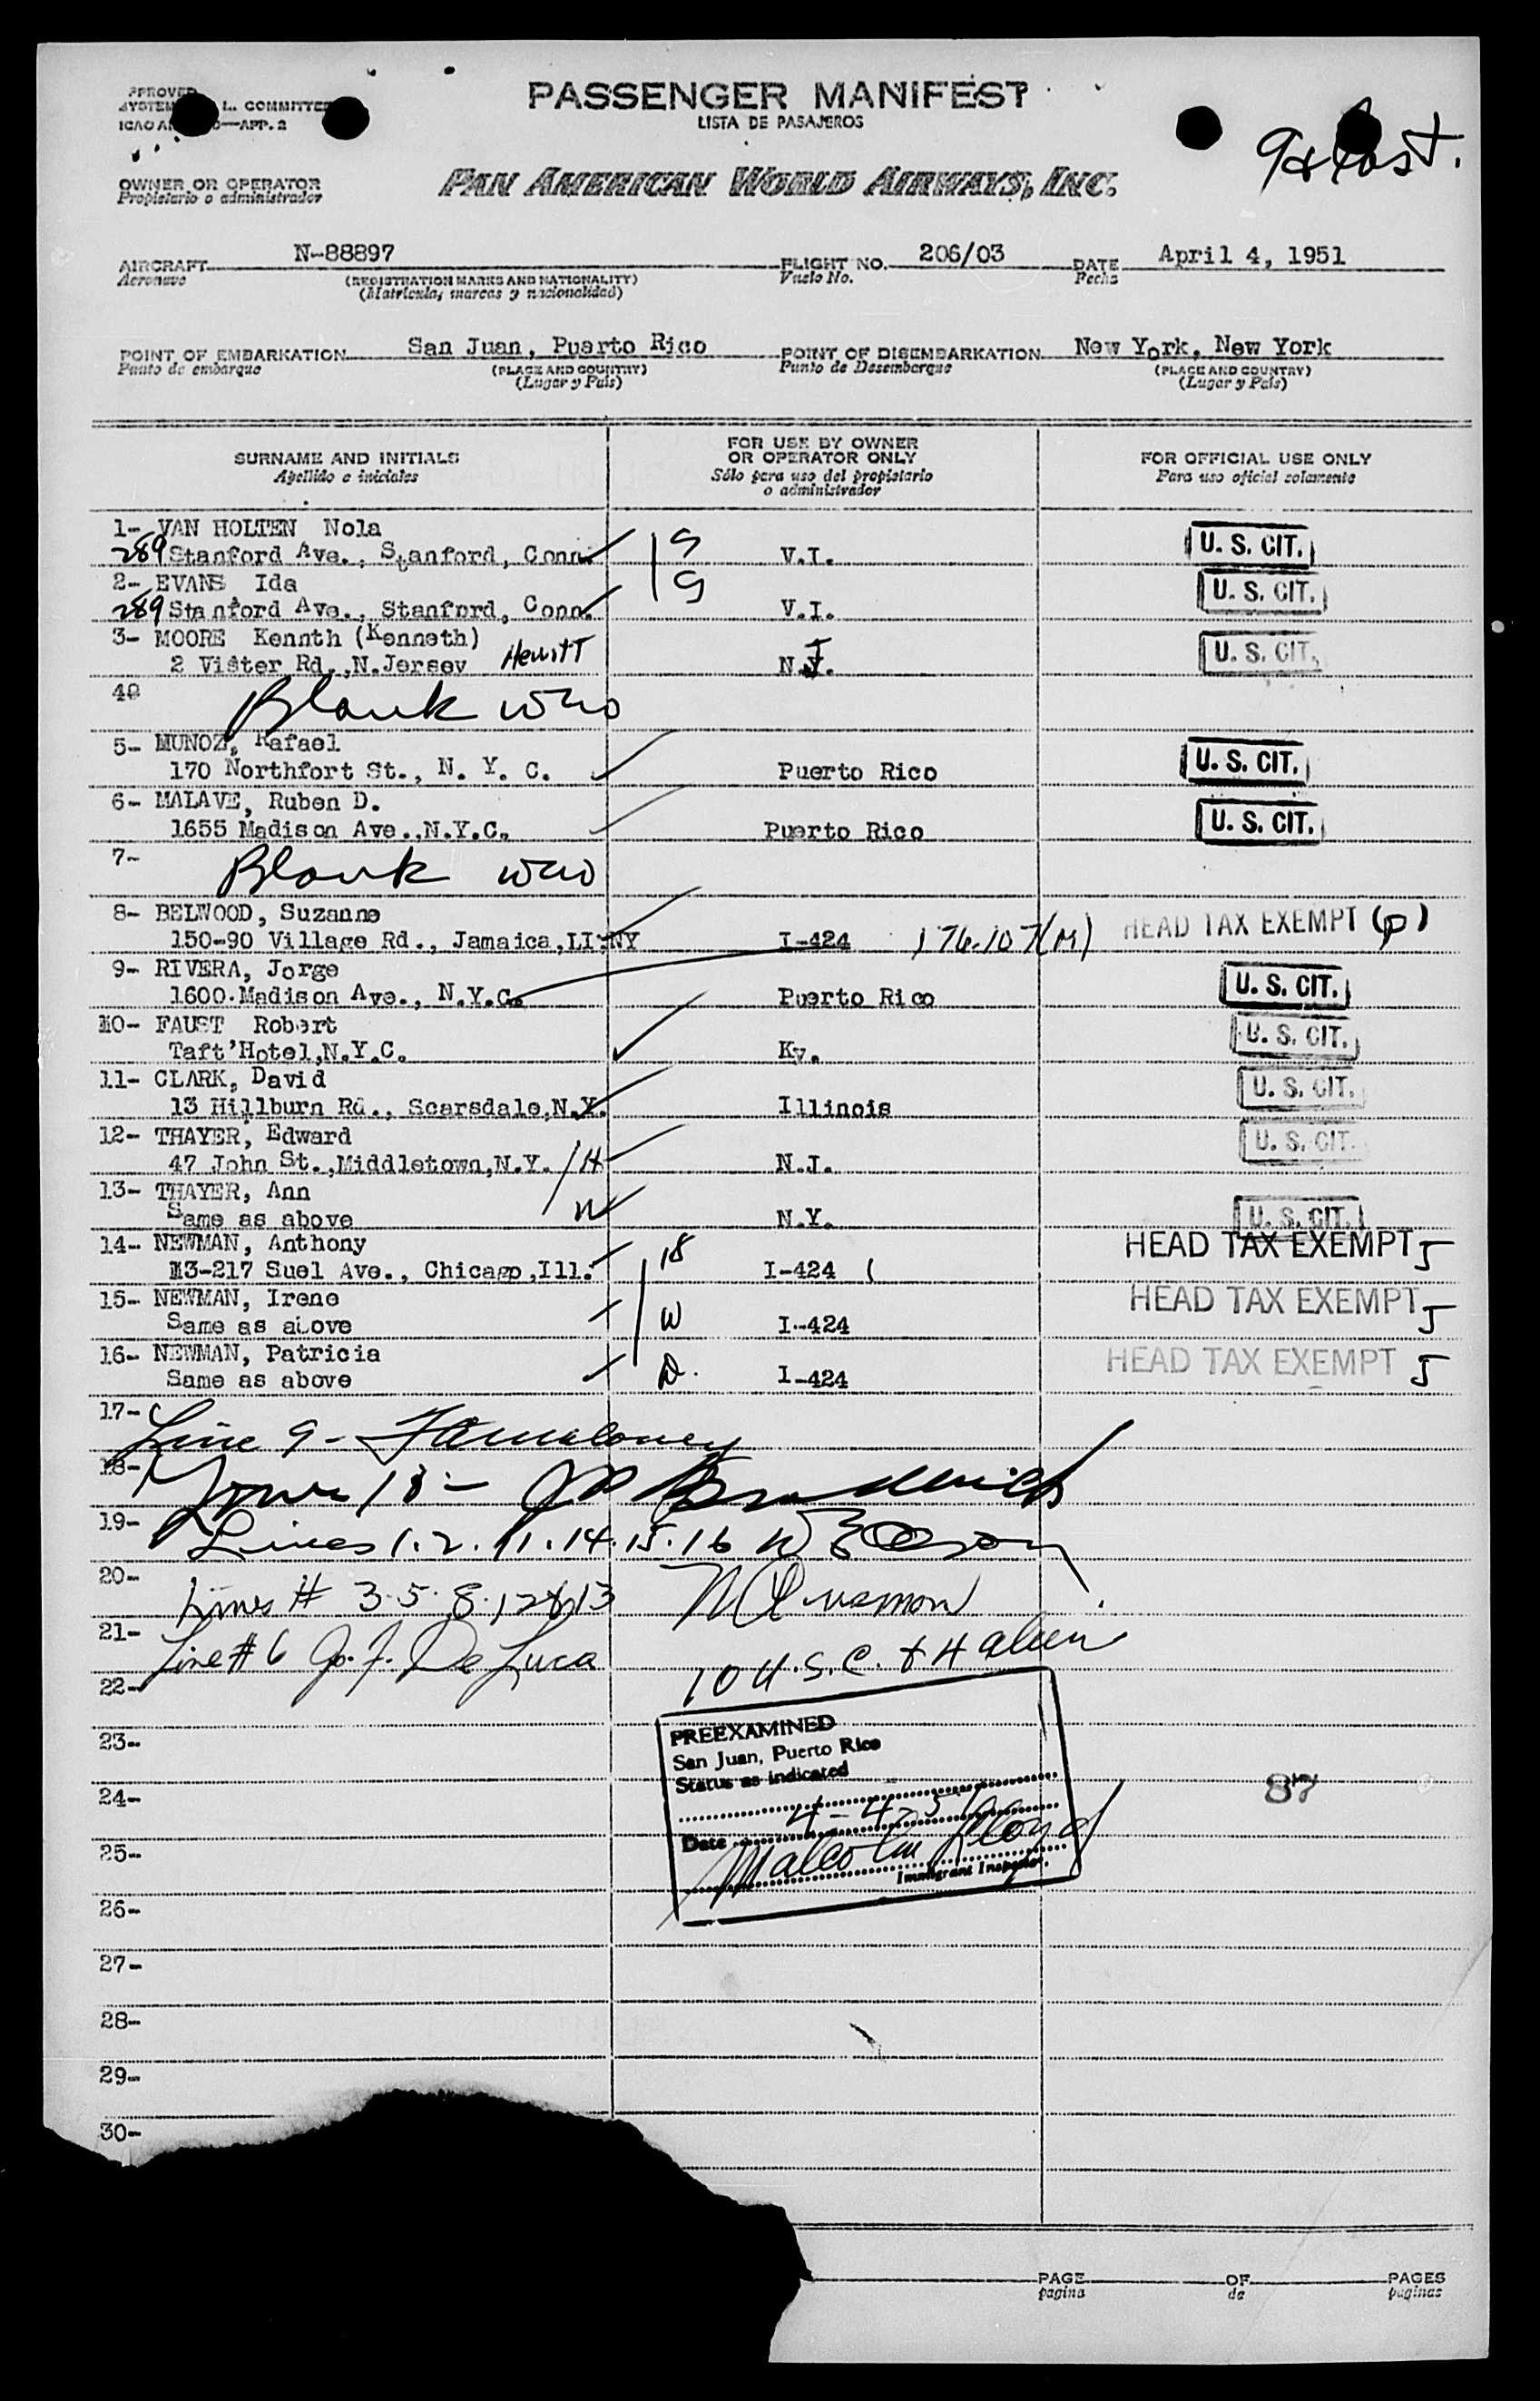 PASSENGER MANIFEST
LISTA DE PASAJEROS
L. COMMITTEE
APP. 2
OWNER OR OPERATOR
Propietario o administrador
PAN AMERICAN WORLD AIRWAYS, INC.
AIRCRAFT N-88897 FLIGHT NO. 206/03 DATE April 4, 1951
Aeronave (REGISTRATION MARKS AND NATIONALITY) Vuelo No. Fecha
(Matrícula, marcas y nacionalidad)
POINT OF EMBARKATION San Juan, Puerto Rico POINT OF DISEMBARKATION New York, New York
Punto de embarque (PLACE AND COUNTRY) Punto de Desembarque (PLACE AND COUNTRY)
(Lugar y País) (Lugar y País)
SURNAME AND INITIALS FOR USE BY OWNER OR OPERATOR ONLY FOR OFFICIAL USE ONLY
Apellido e iniciales Sólo para uso del propietario o administrador Para uso oficial solamente
1- VAN HOLTEN Nola
289 Stanford Ave., Stanford, Conn. S V.I. U. S. CIT.
2- EVANS Ida
289 Stanford Ave., Stanford, Conn. S V.I. U. S. CIT.
3- MOORE Kennth (Kenneth)
2 Vister Rd., N.Jersey Hewitt N.J. U. S. CIT.
4
Blank
5- MUNOZ, Rafael
170 Northfort St., N. Y. C. Puerto Rico U. S. CIT.
6- MALAVE, Ruben D.
1655 Madison Ave.,N.Y.C. Puerto Rico U. S. CIT.
7-
Blank
8- BELWOOD, Suzanne
150-90 Village Rd., Jamaica,LI NY I-424 176.107(M) HEAD TAX EXEMPT (p)
9- RIVERA, Jorge
1600 Madison Ave., N.Y.C. Puerto Rico U. S. CIT.
10- FAUST Robert
Taft'Hotel,N.Y.C. Ky. U. S. CIT.
11- CLARK, David
13 Hillburn Rd., Scarsdale,N.Y. Illinois U. S. CIT.
12- THAYER, Edward
47 John St.,Middletown,N.Y. H N.J. U. S. CIT.
13- THAYER, Ann
Same as above W N.Y. U. S. CIT.
14- NEWMAN, Anthony
13-217 Suel Ave., Chicago,Ill. I-424 HEAD TAX EXEMPT 5
15- NEWMAN, Irene
Same as above W I-424 HEAD TAX EXEMPT 5
16- NEWMAN, Patricia
Same as above D. I-424 HEAD TAX EXEMPT 5
17-
Line 9 -
18-
19-
Lines 1.2.11.14.15.16
20-
Lines # 3.5.8.12&13
21-
Line # 6 Jo. F. De Luca
10 U.S.C. & 4 alien
22-
PREEXAMINED
San Juan, Puerto Rico
Status as indicated
23-
24- 87
Date 4-4-51
25-
Malcolm Lloyd
Immigrant Inspector.
26-
27-
28-
29-
30-
PAGE OF PAGES
pagina de páginas